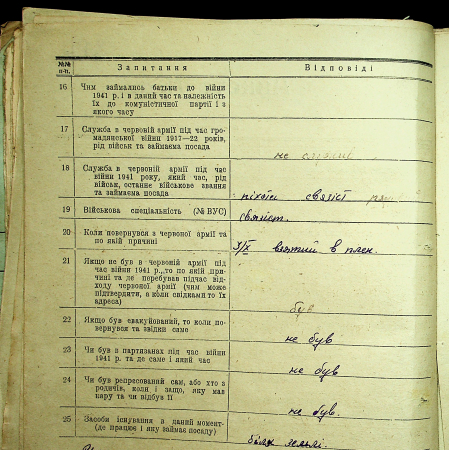 №№ п-п. Запитання Відповіді
16 Чим займались батьки до війни
1941 р. і в даний час та належність
їх до комуністичної партії і з
якого часу
17 Служба в червоній армії під час гро-
мадянської війни 1917—22 років,
рід військ та займаєма посада
не служив
18 Служба в червоній армії під час
війни 1941 року, який час, рід
військ, останнє військове звання
та займаєма посада
піхота связіст
19 Військова спеціальність (№ ВУС)
связіст.
20 Коли повернувся з червоної армії та
по якій причині
3/X взятий в плен.
21 Якщо не був в червоній армії під
час війни 1941 р., то по якій при-
чині та де перебував підчас від-
ходу червоної армії (чим може
підтвердити, а коли свідками то їх
адреса)
був
22 Якщо був евакуйований, то коли по-
вернувся та звідки саме
не був
23 Чи був в партизанах під час війни
1941 р. та де саме і який час
не був
24 Чи був репресований сам, або хто з
родичів, коли і защо, яку мав
кару та чи відбув її
не був.
25 Засоби існування в даний момент-
(де працює і яку займає посаду)
біля землі.